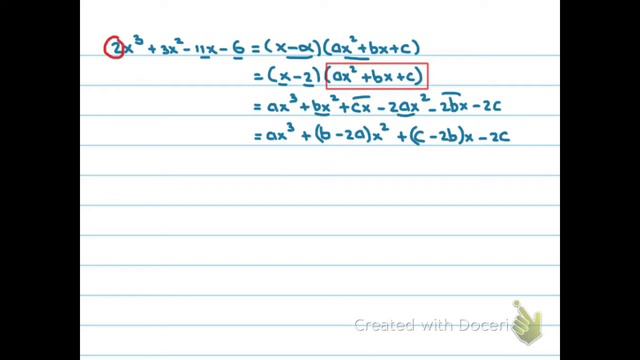 2x³ + 3x² - 11x - 6 = (x - α)(ax² + bx + c)
= (x - 2)(ax² + bx + c)
= ax³ + bx² + cx - 2ax² - 2bx - 2c
= ax³ + (b - 2a)x² + (c - 2b)x - 2c
Created with Doceri